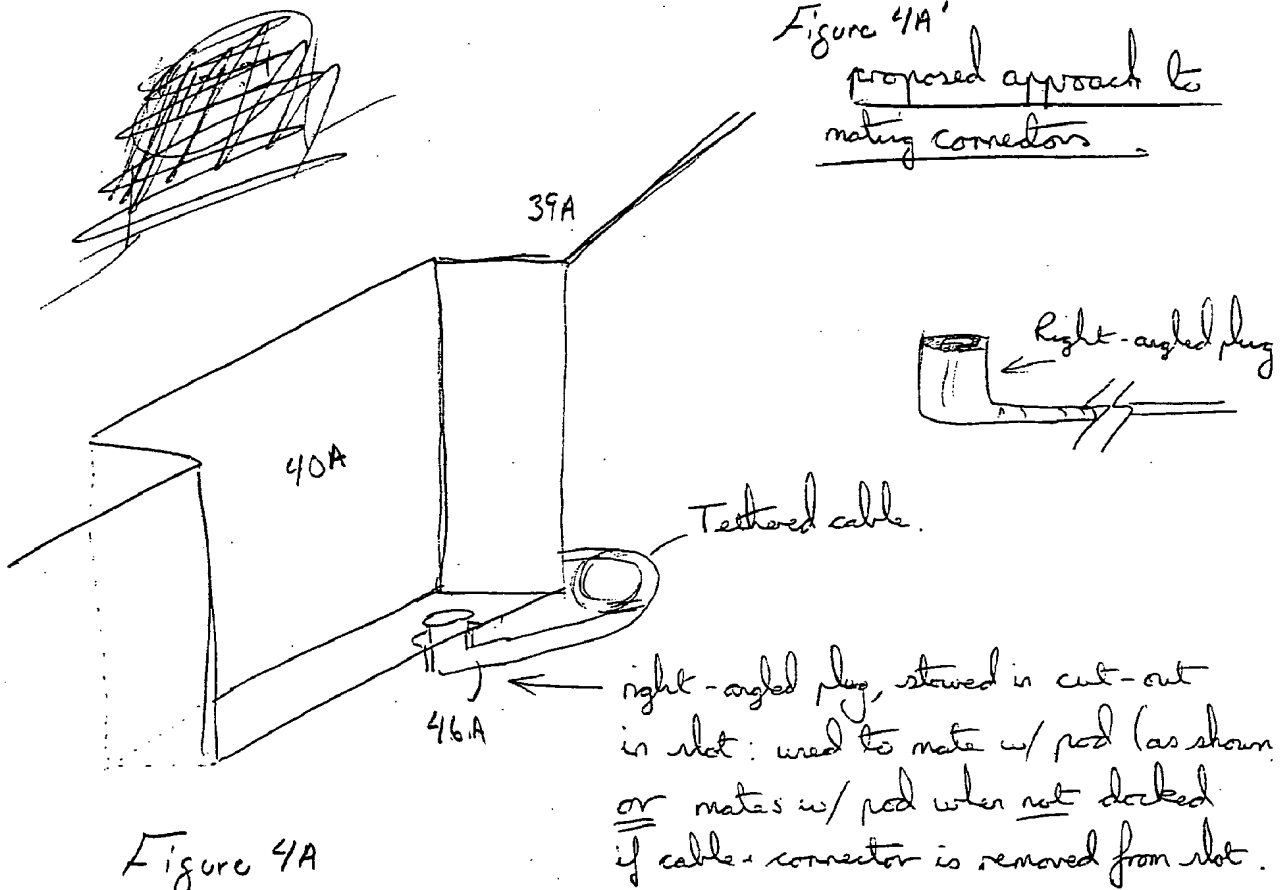 Figure 4A'
proposed approach to
mating connectors.
39A
Right-angled plug
40A
Tethered cable.
46A
right-angled plug, stowed in cut-out
in slot: used to mate w/ pod (as shown
or mates w/ pod when not docked
if cable + connector is removed from slot.
Figure 4A